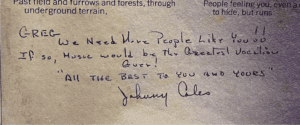 Past field and furrows and forests, through
underground terrain.
People feeling you, even a
to hide, but runs
GREG
We Need More People Like You!!
If so, Music would be the Greatest Vocation
Ever!
"ALL THE BEST TO YOU AND YOURS"
Johnny Coles